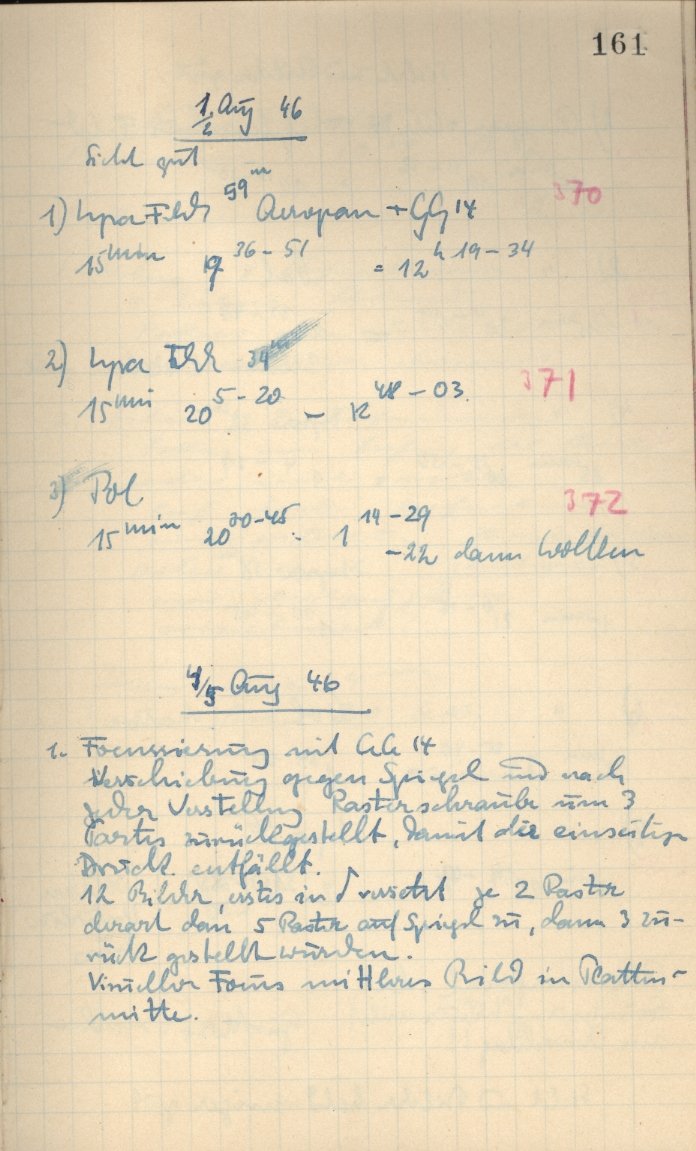 161
1/2 Aug 46
Sicht gut
1) Lyra Feld 59m Aeropan + GG 14 370
15min 19 36-51 = 12h 19-34
2) Lyra Feld 34m 371
15min 20 5-20 – 12 48-03
3) Pol 372
15min 20 30-45 - 1 14-29
-22 dann Wolken
4/5 Aug 46
1. Focussierung mit GG 14
Verschiebung gegen Spiegel und nach
jeder Verstellung Rasterschraube um 3
zurückgestellt, damit der einseitige
Druck entfällt.
12 Bilder, erstes in versetzt je 2 Raster
derart dass 5 Raster auf Spiegel zu, dann 3 zu-
rück gestellt wurden.
Visueller Focus mittleres Bild in Platten-
mitte.